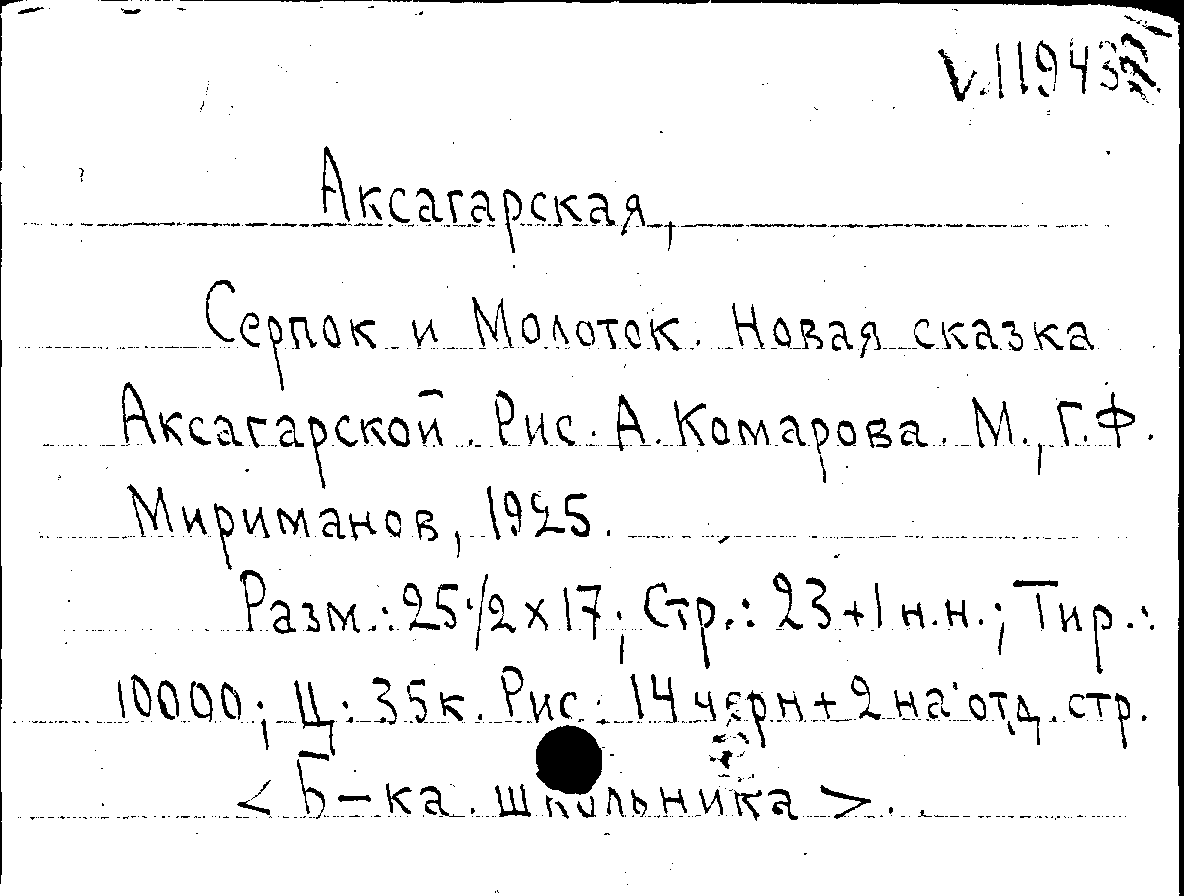 V.11943
Аксагарская,
Серпок и Молоток. Новая сказка
Аксагарской. Рис. А. Комарова. М., Г.Ф.
Мириманов, 1925.
Разм.: 25 1/2 х 17; Стр.: 23+1 н.н.; Тир.:
10000; Ц: 35к. Рис: 14 черн + 2 на отд. стр.
< Б-ка. школьника >.